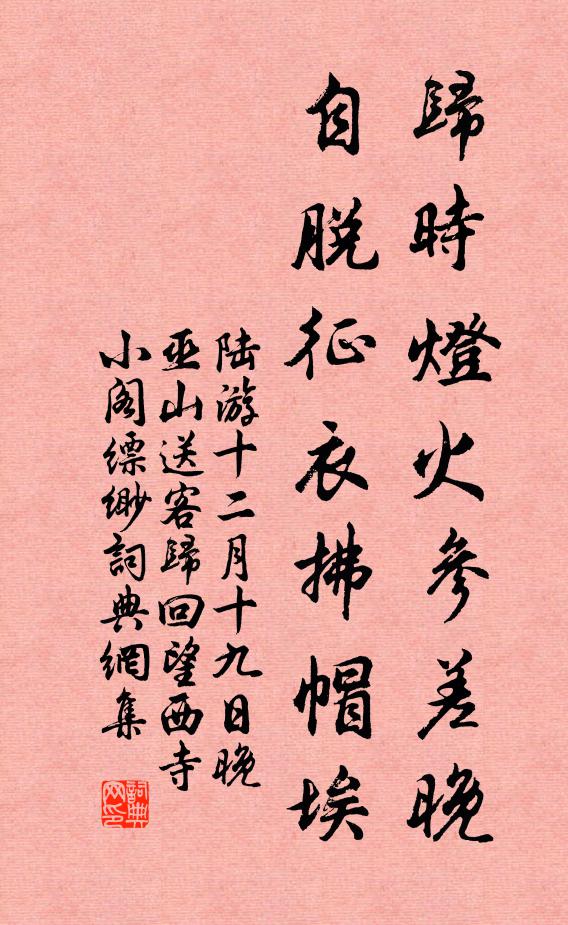 歸時燈火參差晚
自脫征衣拂帽埃
陆游十二月十九日晚
巫山送客歸回望西寺
小阁缥缈詞典網集
詞典网印